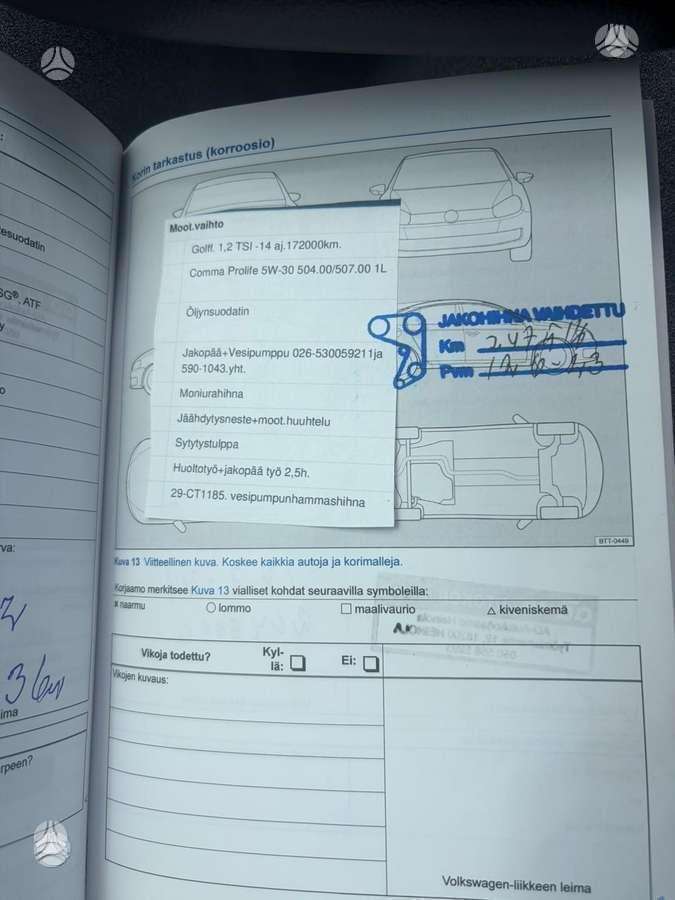 Korin tarkastus (korroosio)
Moot.vaihto
Golff. 1,2 TSI -14 aj.172000km.
Comma Prolife 5W-30 504.00/507.00 1L
Öljynsuodatin
Jakopää+Vesipumppu 026-530059211ja
590-1043.yht.
Moniurahihna
Jäähdytysneste+moot.huuhtelu
Sytytystulppa
Huoltotyö+jakopää työ 2,5h.
29-CT1185. vesipumpunhammashihna
JAKOHIHNA VAIHDETTU
Km
Pvm
BTT-0449
Kuva 13 Viitteellinen kuva. Koskee kaikkia autoja ja korimalleja.
Korjaamo merkitsee Kuva 13 vialliset kohdat seuraavilla symboleilla:
naarmu lommo maalivaurio kiveniskemä
Vikoja todettu? Kyl-
lä: Ei:
Vikojen kuvaus:
Volkswagen-liikkeen leima
esuodatin
SG®, ATF
y
o
va:
36
ima
rpeen?